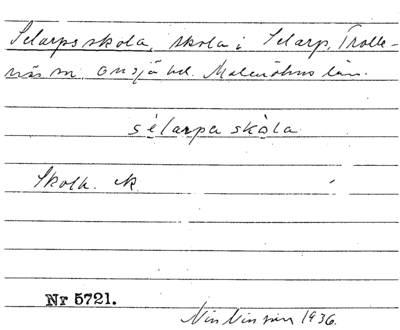 Selarps skola, skola i Selarp, Trolle-
näs sn, Onsjö hd. Malmöhus län.
sélarpa skòla
Skolk. ek
Nr 5721.
1936.